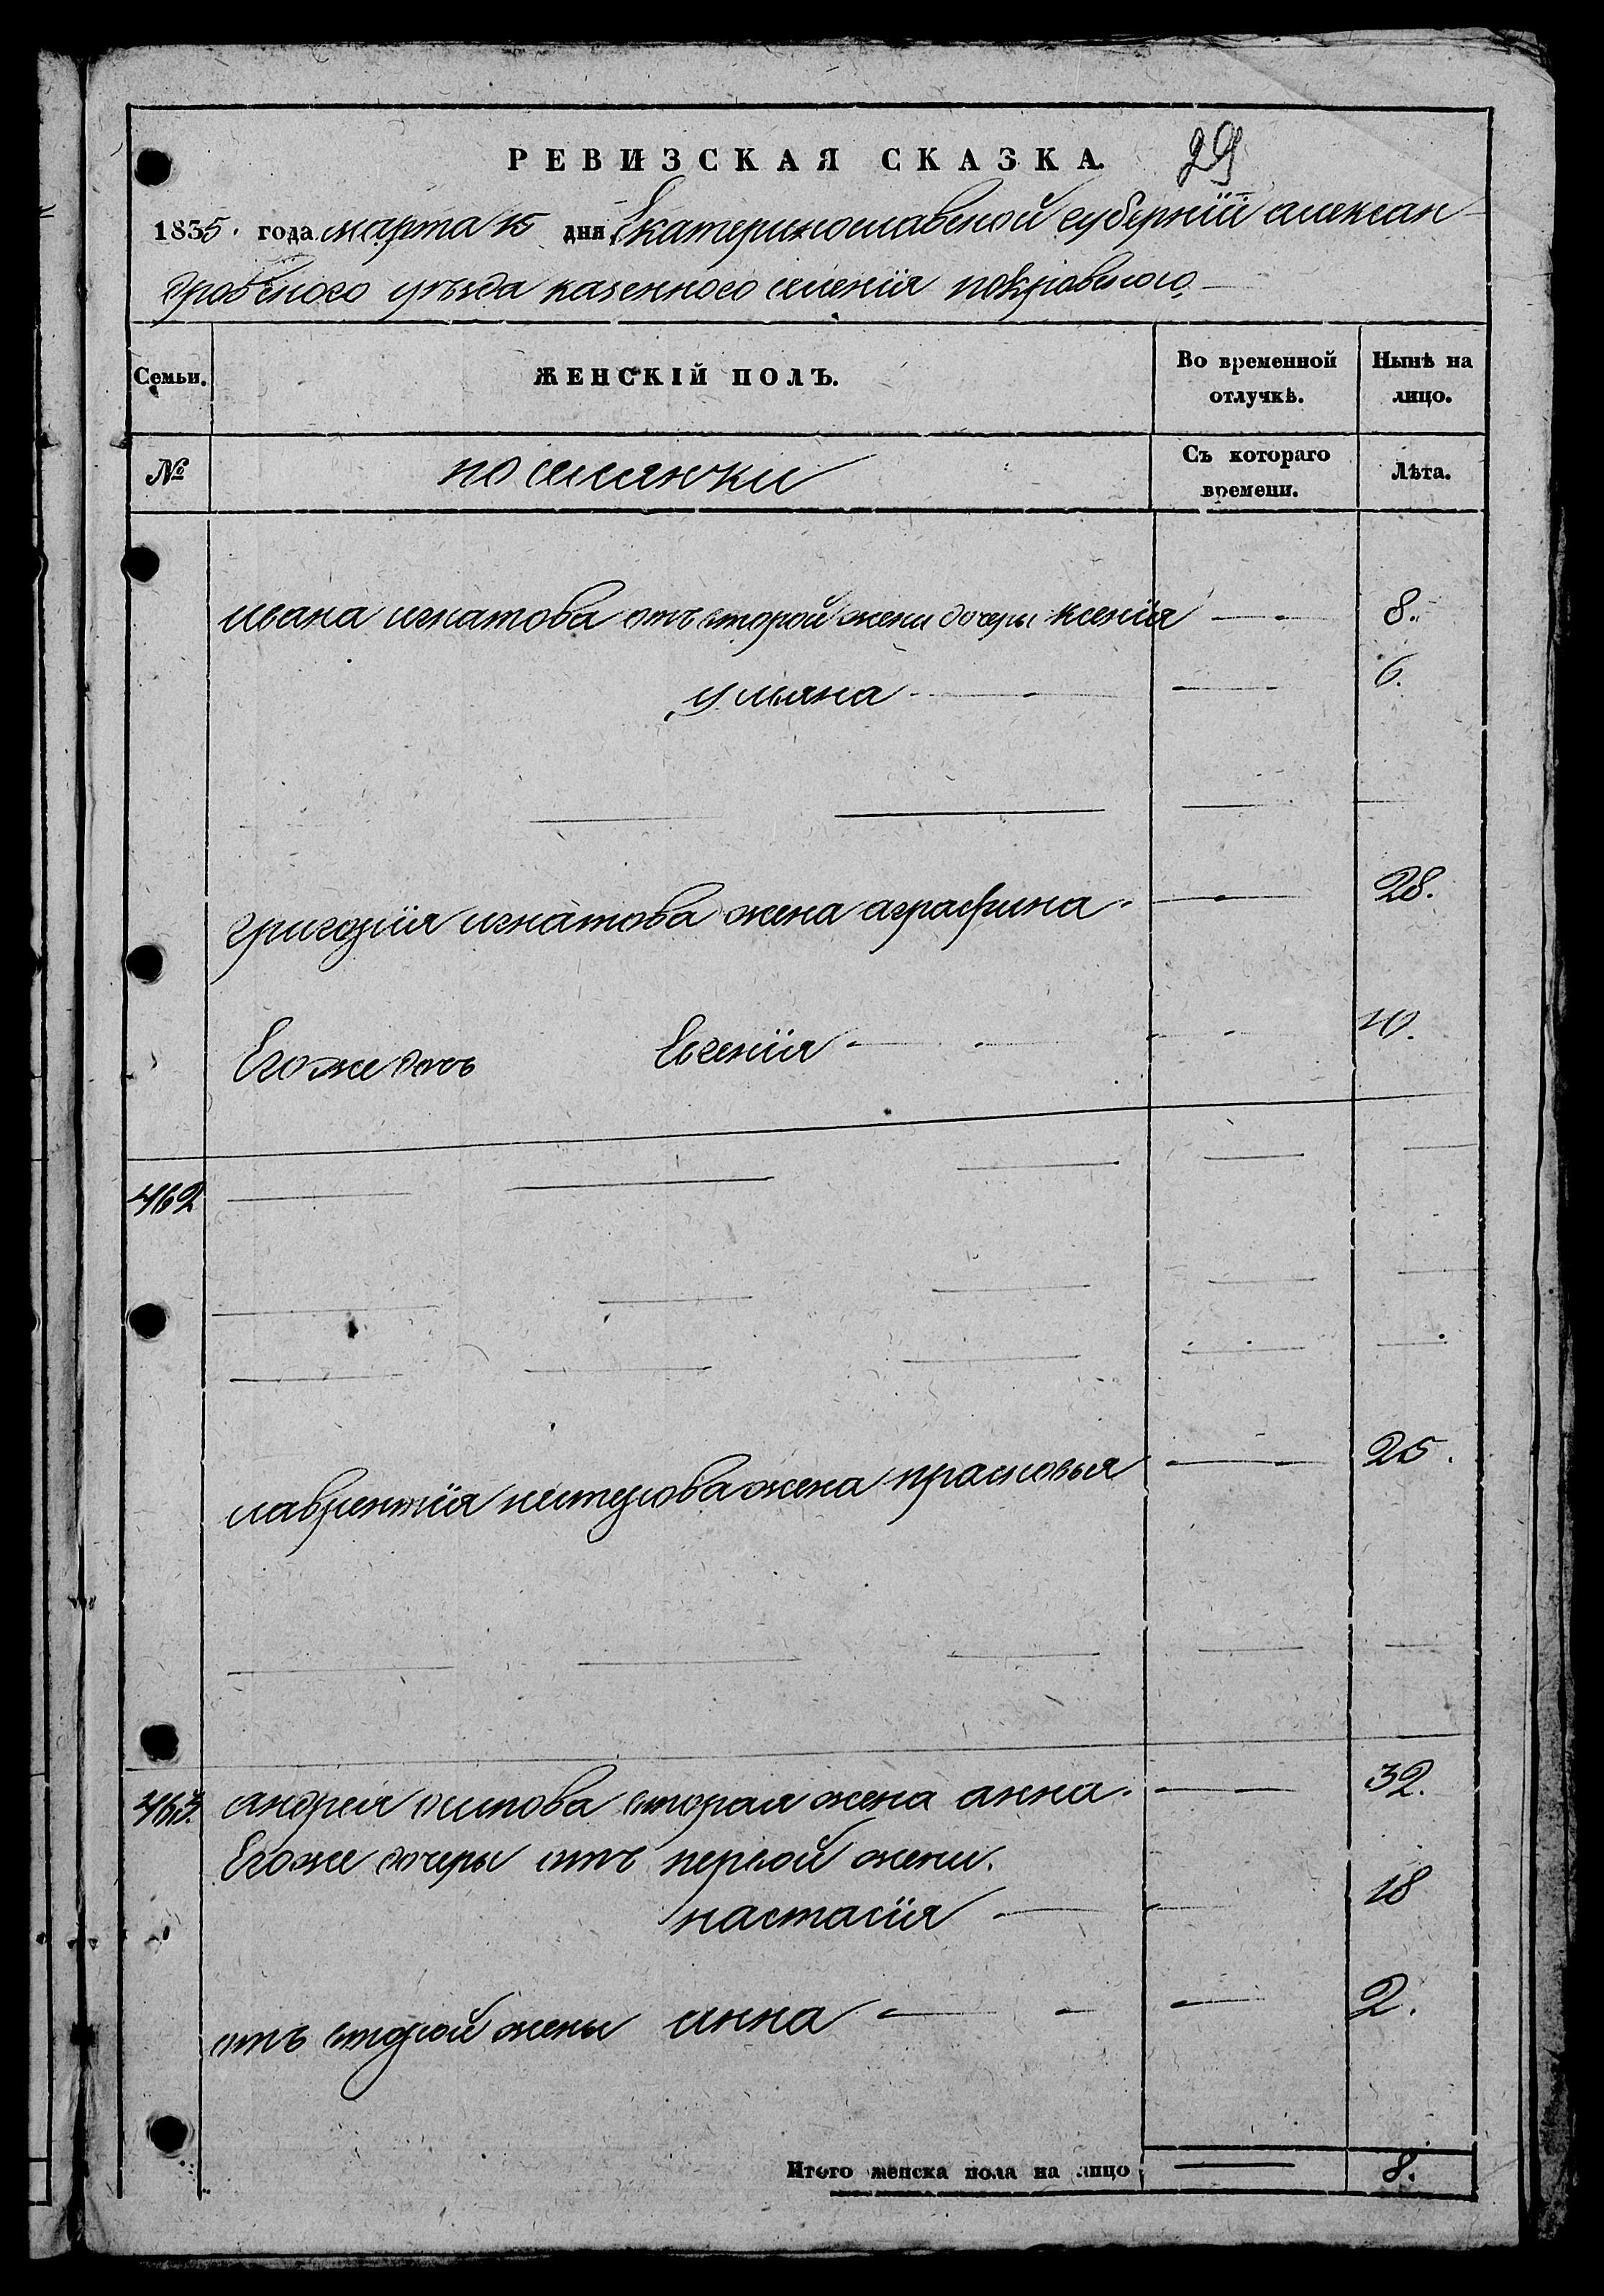 РЕВИЗСКАЯ СКАЗКА.
29
1835. года марта 15 дня Екатеринославской губернїи алексан-
дровского уѣзда казенного селенїя покровского
Семьи.
ЖЕНСКІЙ ПОЛЪ.
Во временной отлучкѣ.
Нынѣ на лицо.
№
поселянки
Съ котораго времени.
Лѣта.
ивана игнатова отъ второй жени дочеры ксенїя 8.
ульяна 6.
григорїя игнатова жена аграфина 28.
Егоже дочь Евгенїя 10.
462
лаврентїя нестерова жена прасковья 25.
463. андрея осипова вторая жена анна. 32.
Егоже дочеры отъ первой жени.
настасїя 18
отъ второй жены анна 2.
Итого женска пола на лицо 8.